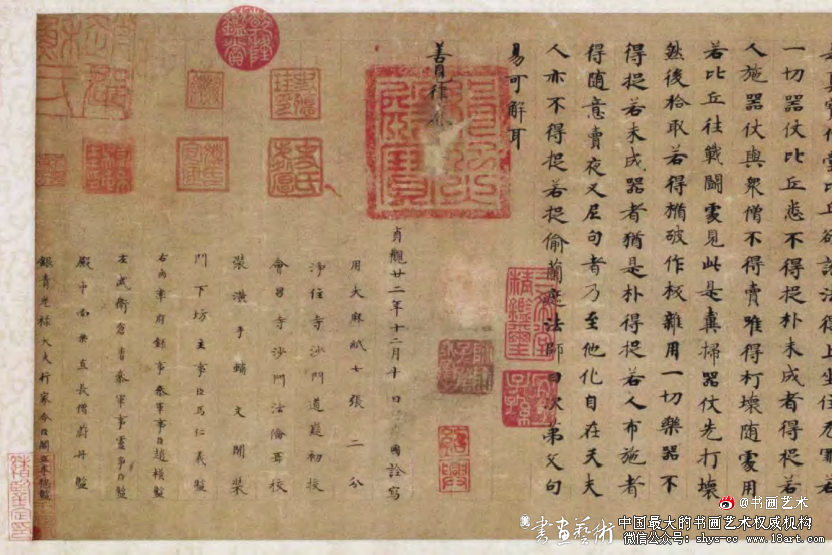 一切器仗比丘悉不得捉朴未成者得捉若
人施器仗與衆僧不得賣唯得打壞隨處用
若比丘往戰鬪處見此是糞掃器仗先打壞
然後拾取若得猶破作板雜用一切樂器不
得捉若未成器者猶是朴得捉若人布施者
得随意賣夜叉尼句者乃至他化自在天夫
人亦不得捉若捉偷蘭遮法師曰次第文句
易可解耳
善見律
貞觀廿二年十二月十日國詮寫
用大麻紙七張二分
淨住寺沙門道嶷初挍
會昌寺沙門法倫再挍
裝潢手輔文開裝
門下坊主事臣馬仁義監
右内率府錄事參軍事臣趙模監
左威衛倉曹參軍事
殿中尚藥直長
銀青光祿大夫行家令臣閻立本總監
乾隆鑑賞
三希堂精鑑璽
宜子孫
紹興
@书画艺术
書畫藝術
中国最大的书画艺术权威机构
微信公众号:shys-cc www.18art.com